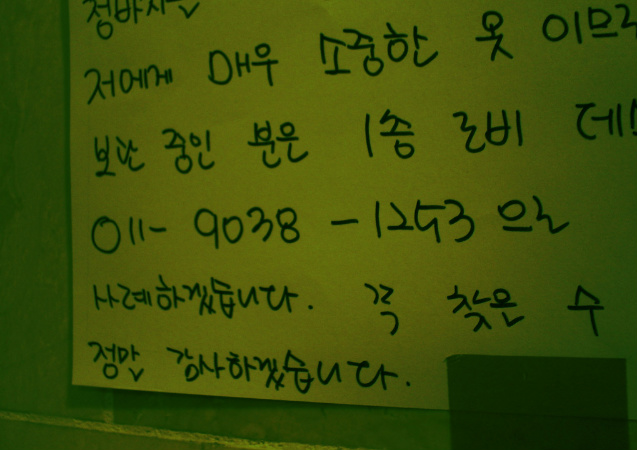 청바지를
저에게 매우 소중한 옷 이므로
보관 중인 분은 1층 로비 데
011- 9038 -1253 으로
사례하겠습니다. 꼭 찾은 수
정말 감사하겠습니다.